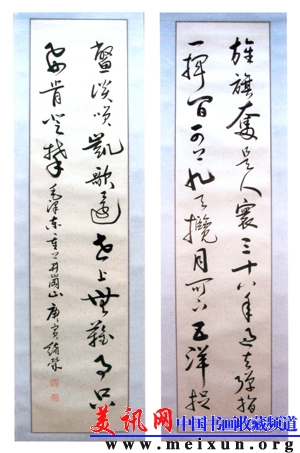 旌旗奮是人寰三十八年過去彈指
一揮間可上九天攬月可下五洋捉
鱉談笑凱歌還世上無難事只
要肯登攀 毛澤東重上井岡山 庚寅
美讯网 中国书画收藏频道
www.meixun.org